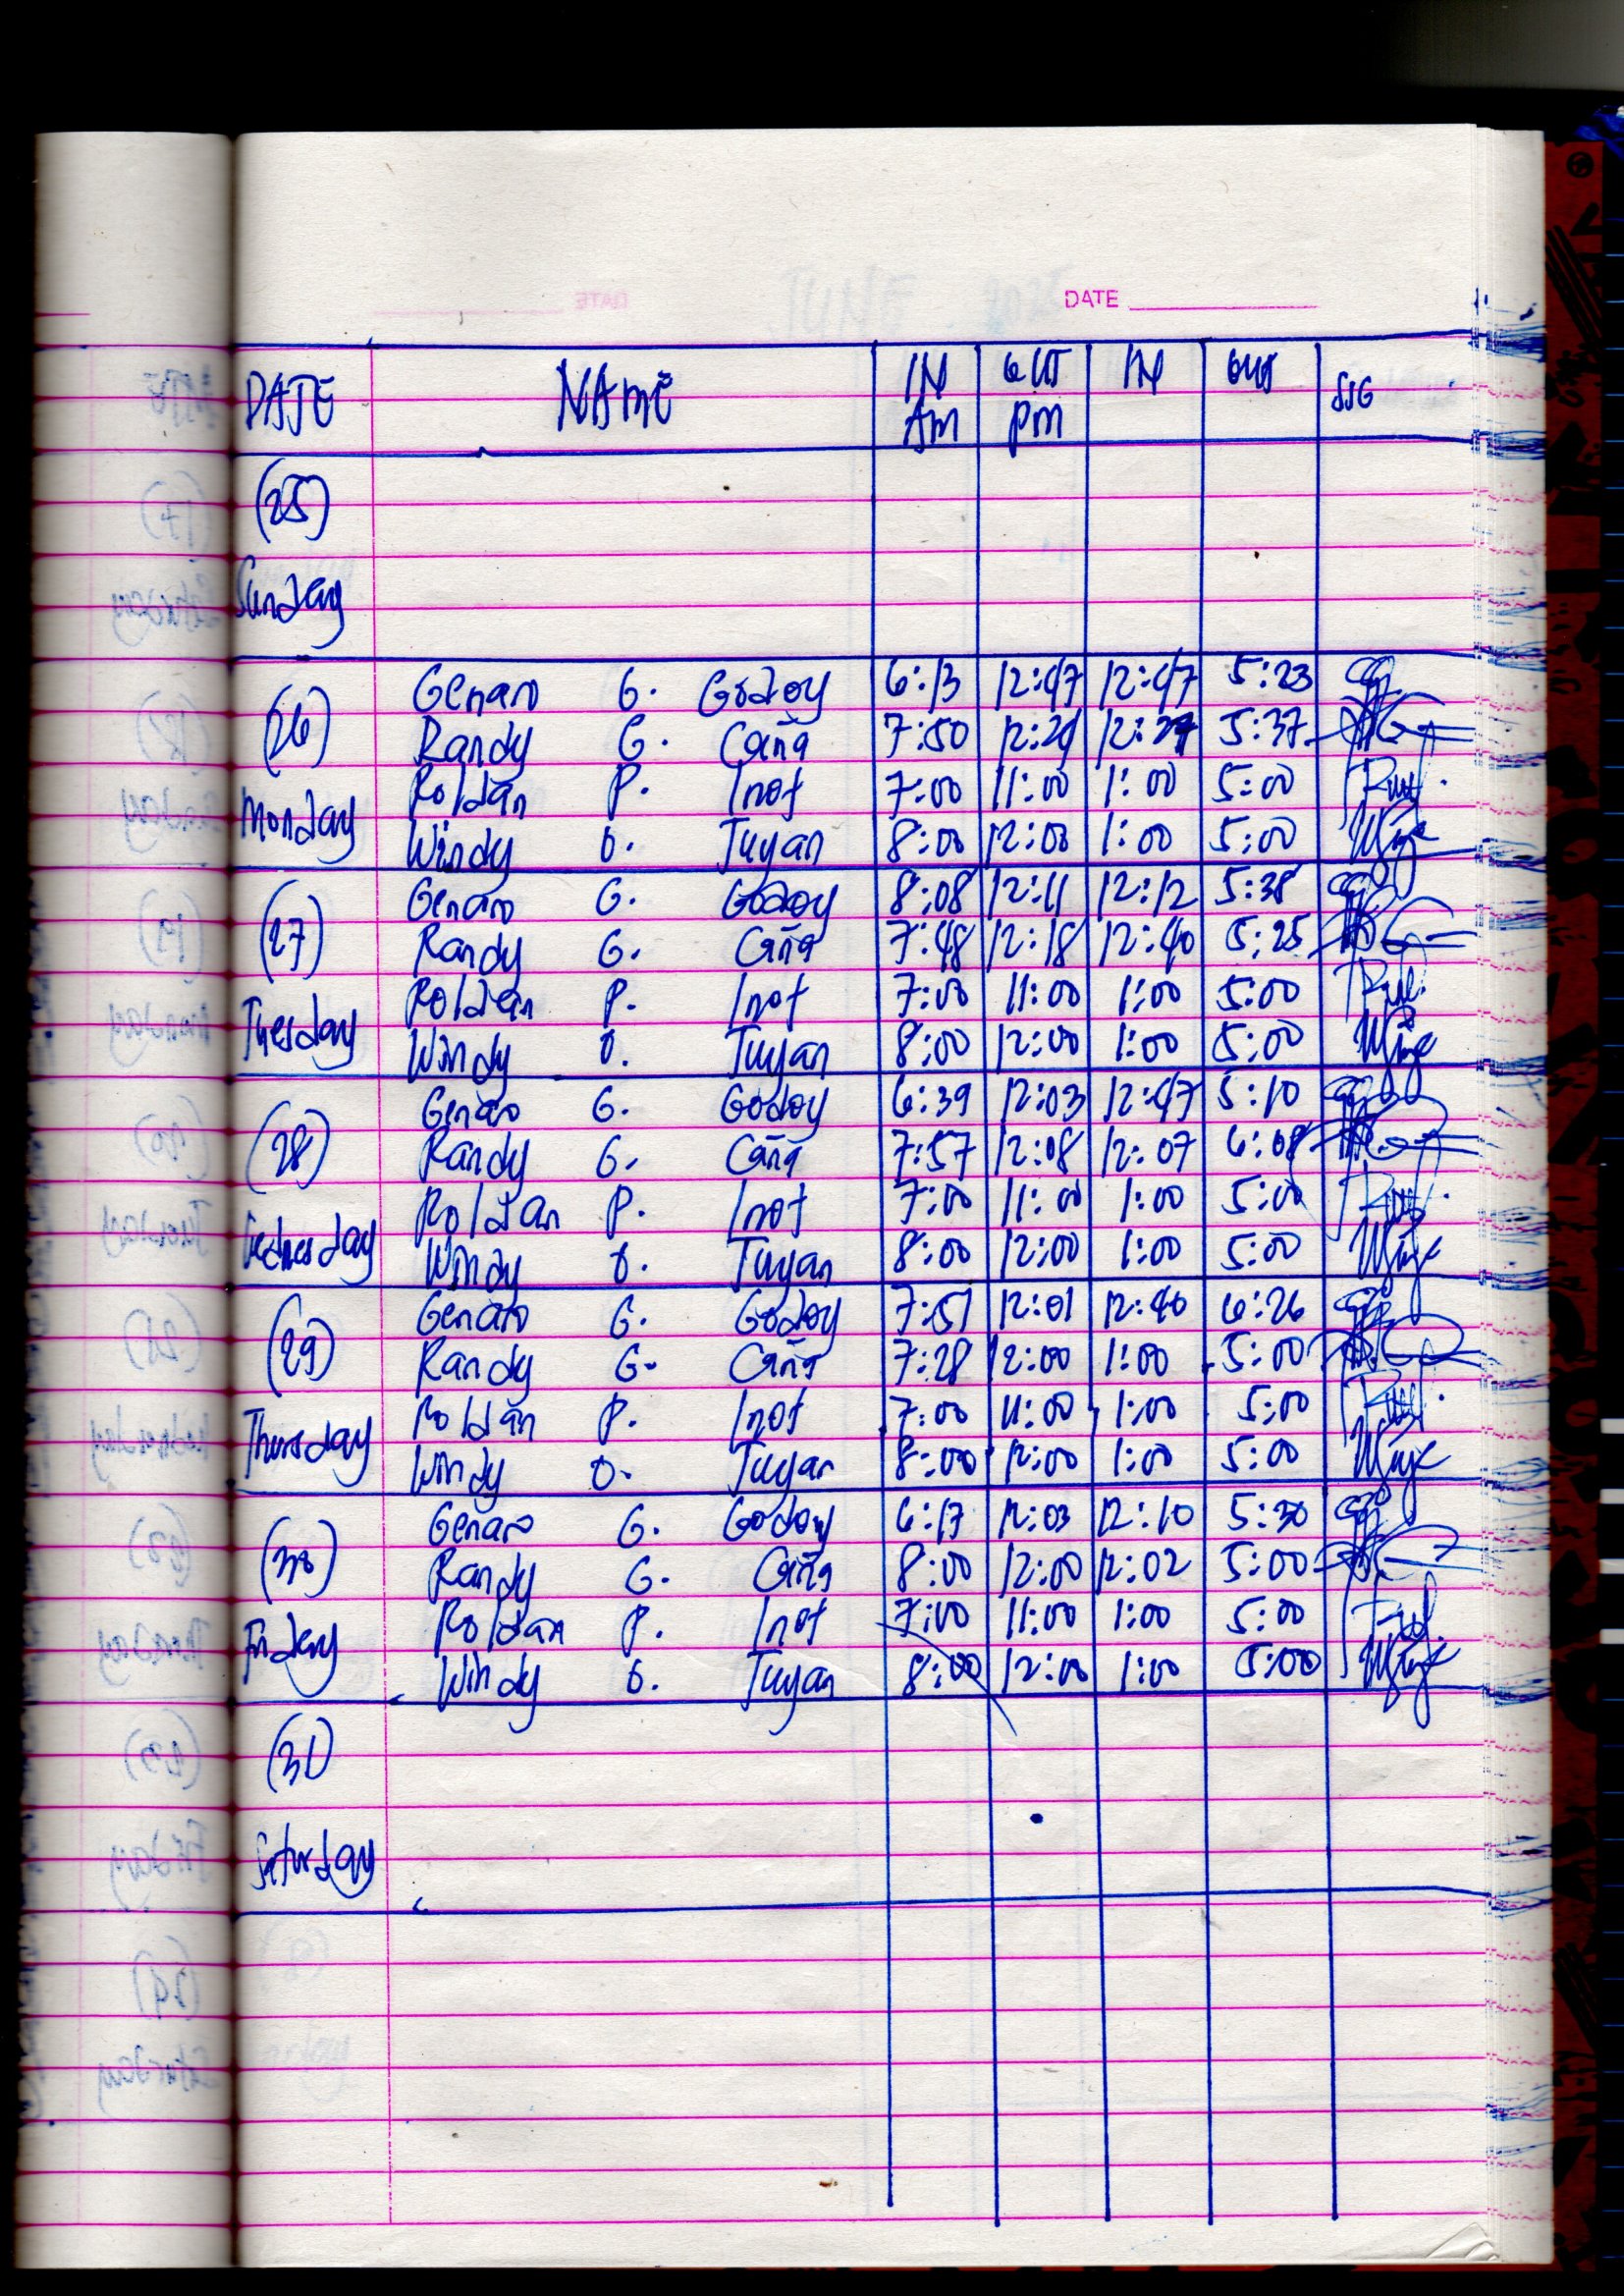 DATE
DATE NAME IN OUT IN OUT SIG
AM PM
(25)
Sunday
Genaro G. Godoy 6:13 12:47 12:47 5:23
(26) Randy G. Caña 7:50 12:29 5:37
Roldan P. Inot 7:00 11:00 1:00 5:00
Monday Windy O. Tuyan 8:00 12:00 1:00 5:00
Genaro G. Godoy 8:08 12:11 12:12 5:38
(27) Randy G. Caña 7:48 12:18 12:40 5:25
Roldan P. Inot 7:00 11:00 1:00 5:00
Tuesday Windy O. Tuyan 8:00 12:00 1:00 5:00
Genaro G. Godoy 6:39 12:03 12:47 5:10
(28) Randy G. Caña 7:57 12:08 12:07 6:08
Roldan P. Inot 7:00 11:00 1:00 5:00
Wednesday Windy O. Tuyan 8:00 12:00 1:00 5:00
Genaro G. Godoy 7:51 12:01 12:40 6:26
(29) Randy G. Caña 7:28 12:00 1:00 5:00
Roldan P. Inot 7:00 11:00 1:00 5:00
Thursday Windy O. Tuyan 8:00 12:00 1:00 5:00
Genaro G. Godoy 6:17 12:03 12:10 5:30
(30) Randy G. Caña 8:00 12:00 12:02 5:00
Roldan P. Inot 7:00 11:00 1:00 5:00
Friday Windy O. Tuyan 8:00 12:00 1:00 5:00
(31)
Saturday